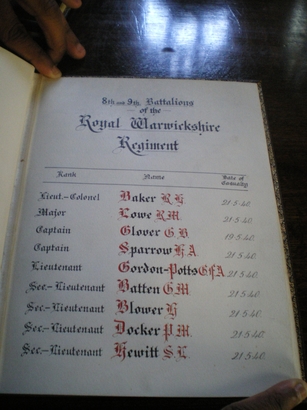 8th and 9th Battalions
of the
Royal Warwickshire
Regiment
Rank Name Date of
Casualty
Lieut.-Colonel Baker R.L. 21·5·40.
Major Lowe R.M. 21·5·40.
Captain Glover C.H. 19·5·40.
Captain Sparrow H.A. 21·5·40.
Lieutenant Gordon-Potts G.f.A 21·5·40.
Sec.-Lieutenant Batten G.M. 21·5·40.
Sec.-Lieutenant Blower H 21·5·40.
Sec.-Lieutenant Docker P.M. 21·5·40.
Sec.-Lieutenant Hewitt S.L. 21·5·40.